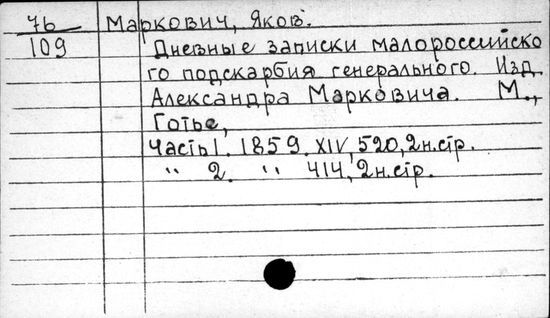 76 Маркович, Яков.
109 Дневные записки малороссийско
го подскарбия генерального. Изд.
Александра Марковича. М.,
Готье,
Часть 1. 1859. XIV, 520, 2 н.стр.
" 2. " 414, 2 н.стр.